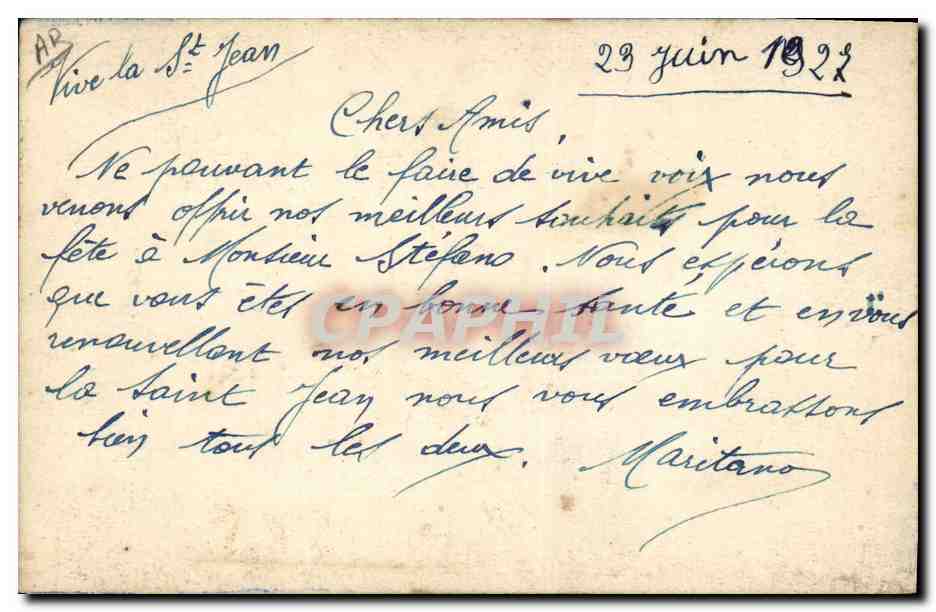 AR
Vive la St Jean
23 Juin 1927
Chers Amis,
Ne pouvant le faire de vive voix nous
venons offrir nos meilleurs souhaits pour la
fête à Monsieur Stéfano. Nous espérons
que vous êtes en bonne santé et en vous
renouvellant nos meilleurs vœux pour
la Saint Jean nous vous embrassons
bien tous les deux. Maritano
CPAPHIL